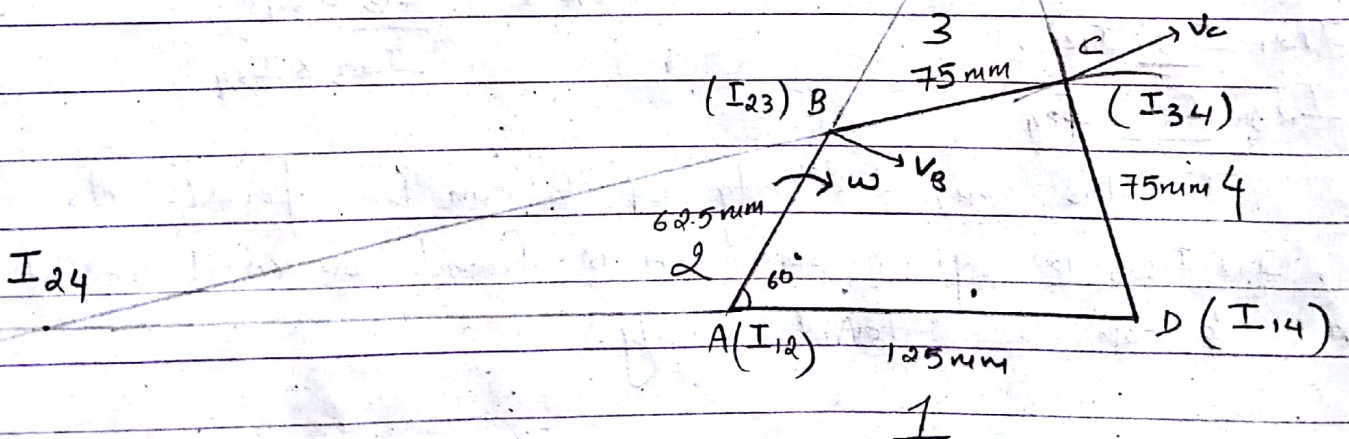 3
C
Vc
75mm
(I23) B
(I34)
VB
ω
75mm 4
62.5mm
2
60°
I24
A(I12)
125mm
D (I14)
1